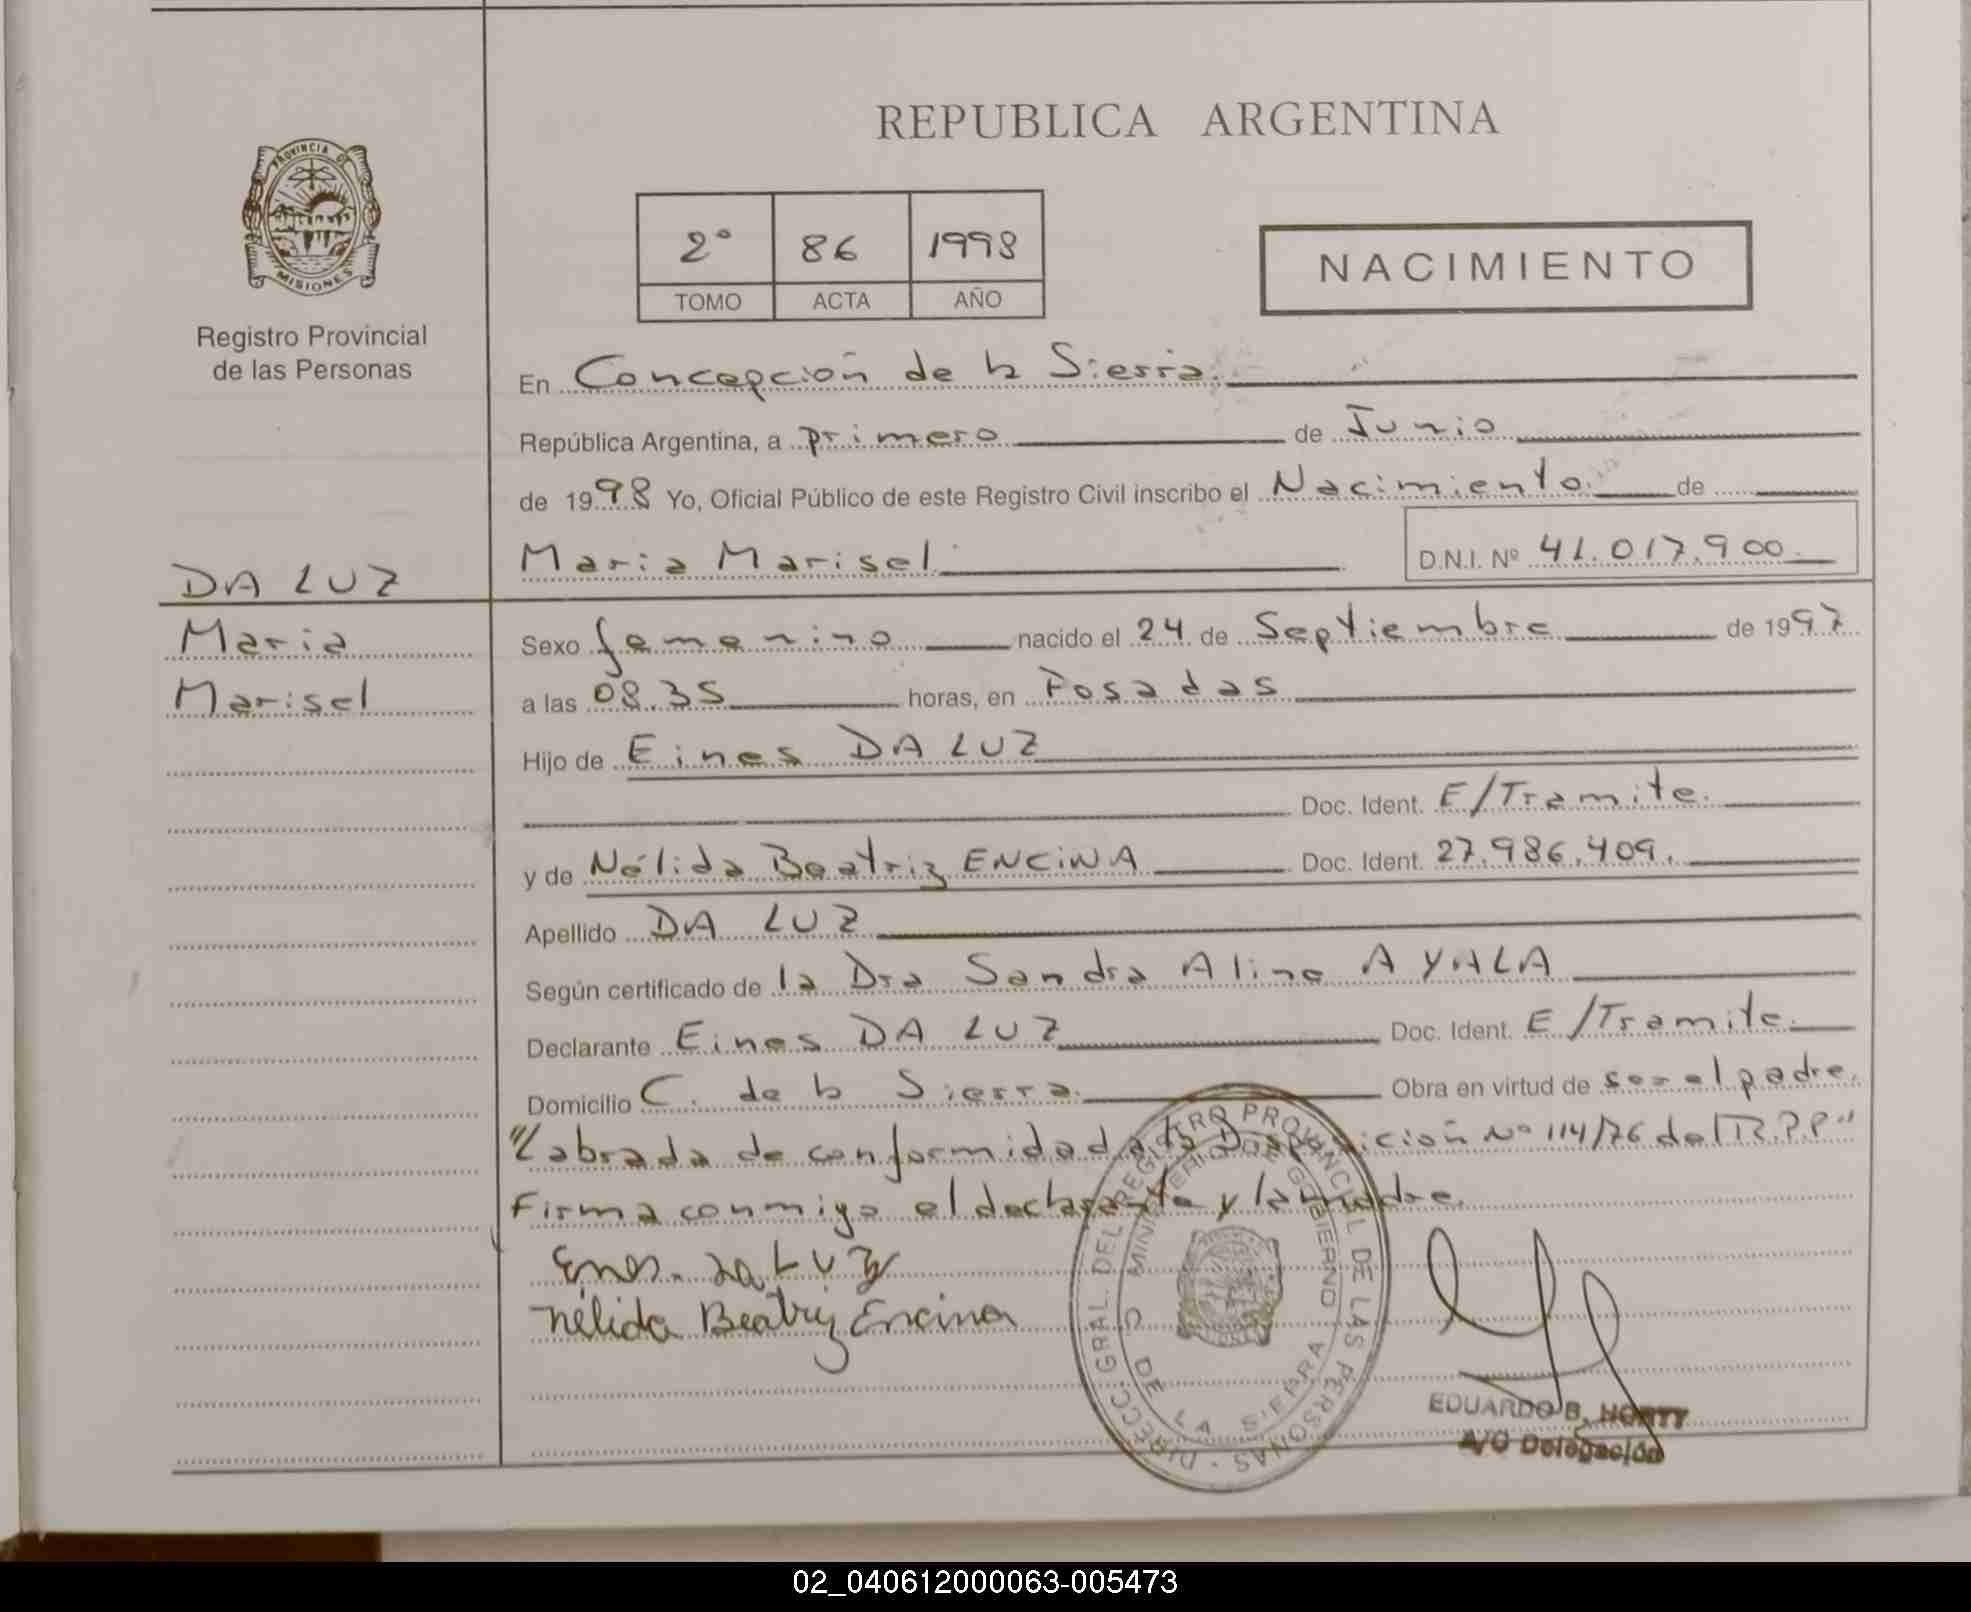 REPUBLICA ARGENTINA
PROVINCIA DE
MISIONES
Registro Provincial
de las Personas
2° 86 1998
TOMO ACTA AÑO
NACIMIENTO
En Concepción de la Sierra.
República Argentina, a primero de Junio
de 1998 Yo, Oficial Público de este Registro Civil inscribo el Nacimiento. de
Maria Marisel. D.N.I. Nº 41.017.900.
DA LUZ
Maria
Marisel
Sexo femenino nacido el 24 de Septiembre de 1997
a las 08.35 horas, en Posadas
Hijo de Eines DA LUZ
Doc. Ident. E/Tramite.
y de Nélida Beatriz ENCINA Doc. Ident. 27.986.409.
Apellido DA LUZ
Según certificado de la Dra Sandra Alina AYALA
Declarante Eines DA LUZ Doc. Ident. E/Tramite.
Domicilio C. de la Sierra. Obra en virtud de ser el padre.
"Labrada de conformidad a la Disposición Nº 114/76 del R.P.P"
Firma conmigo el declarante y la madre.
Nélida Beatriz Encina
DIRECC. GRAL. DEL REGISTRO PROVINCIAL DE LAS PERSONAS
MINISTERIO DE GOBIERNO
C DE LA SIERRA
EDUARDO B. HORTY
A/C Delegación
02_040612000063-005473